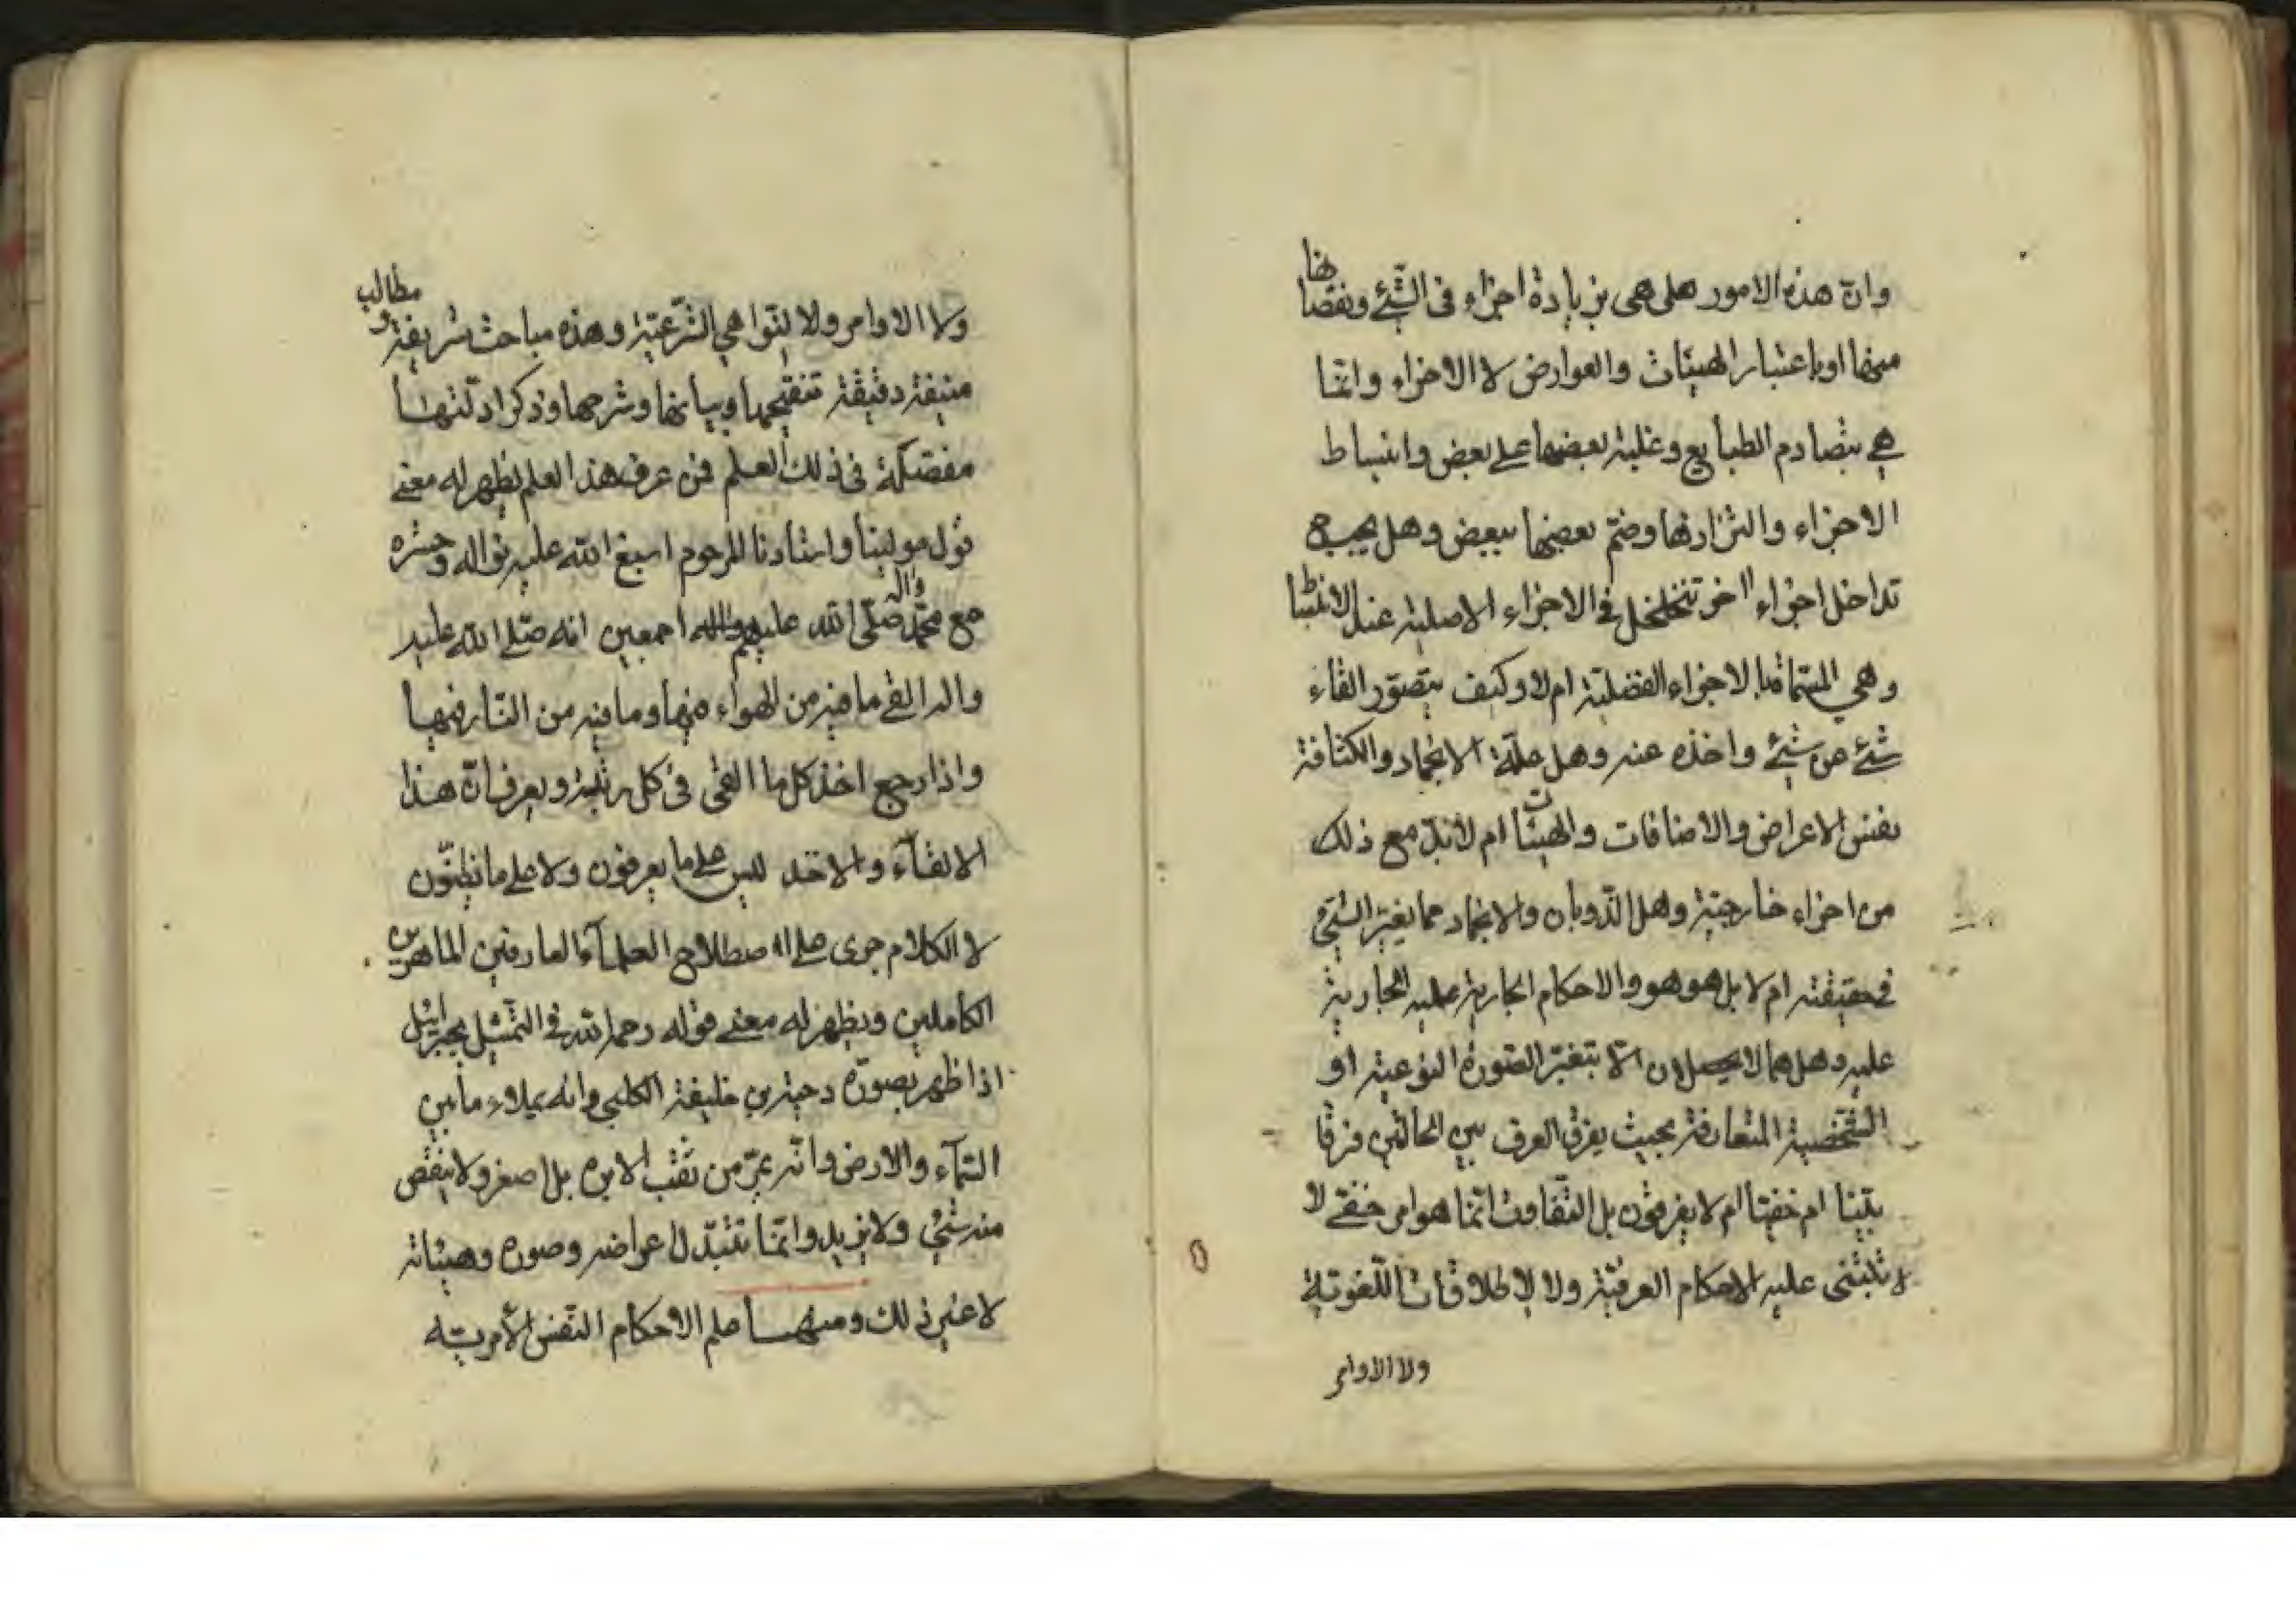 وان هذه الامور هل هي بزيادة اجزاء في الشئ ونقصانها
منها او باعتبار الهيئات والعوارض لا الاجزاء وانما
هي بتصادم الطبايع وغلبة بعضها على بعض وانبساط
الاجزاء والتزازها وضم بعضها ببعض وهل يجب ح
تداخل اجزاء اخر تتخلخل في الاجزاء الاصلية عند الانبساط
وهي المسماة بالاجزاء الفضلية ام لا وكيف يتصور القاء
شئ عن شئ واخذه عنه وهل علة الانجماد والكثافة
نفس الاعراض والاضافات والهيئات ام لابد مع ذلك
من اجزاء خارجية وهل الذوبان والانجماد مما يغير الشئ
في حقيقته ام لا بل هو هو والاحكام الجارية عليه الجارية
عليه وهل هما لا يحصلان الا بتغير الصورة النوعية او
الشخصية المتعارفة بحيث يفرق العرف بين الحالتين فرقا
بينا ام خفيا ام لا يفرقون بل التفاوت انما هو امر خفي لا
لا تبتنى عليه الاحكام العرفية ولا الاطلاقات اللغوية
ولا الاوامر
ولا الاوامر ولا النواهي الشرعية وهذه مباحث شريفة ومطالب
منيفة دقيقة تنقيحها وبيانها وشرحها وذكر ادلتها
مفصلة في ذلك العلم فمن عرف هذا العلم يظهر له معنى
قول مولينا واستادنا المرحوم اسبغ الله عليه نواله وحشره
مع محمد واله صلى الله عليهم اجمعين انه صلى الله عليه
واله القى ما فيه من الهواء فيها وما فيه من النار فيها
واذا رجع اخذ كل ما القى في كل رتبة ويعرف ان هذا
الالقاء والاخذ ليس على ما يعرفون ولا على ما يظنون
لا الكلام جرى على اصطلاح العلماء العارفين الماهرين
الكاملين ويظهر له معنى قوله رحمه الله في التمثيل بجبرائيل
اذا ظهر بصورة دحية بن خليفة الكلبي وانه يملاء ما بين
السماء والارض وانه يمر من ثقب الابره بل اصغر ولا ينقص
منه شئ ولا يزيد وانما تتبدل اعراضه وصوره وهيئاته
لا غير ذلك ومنها علم الاحكام النفس الامرية